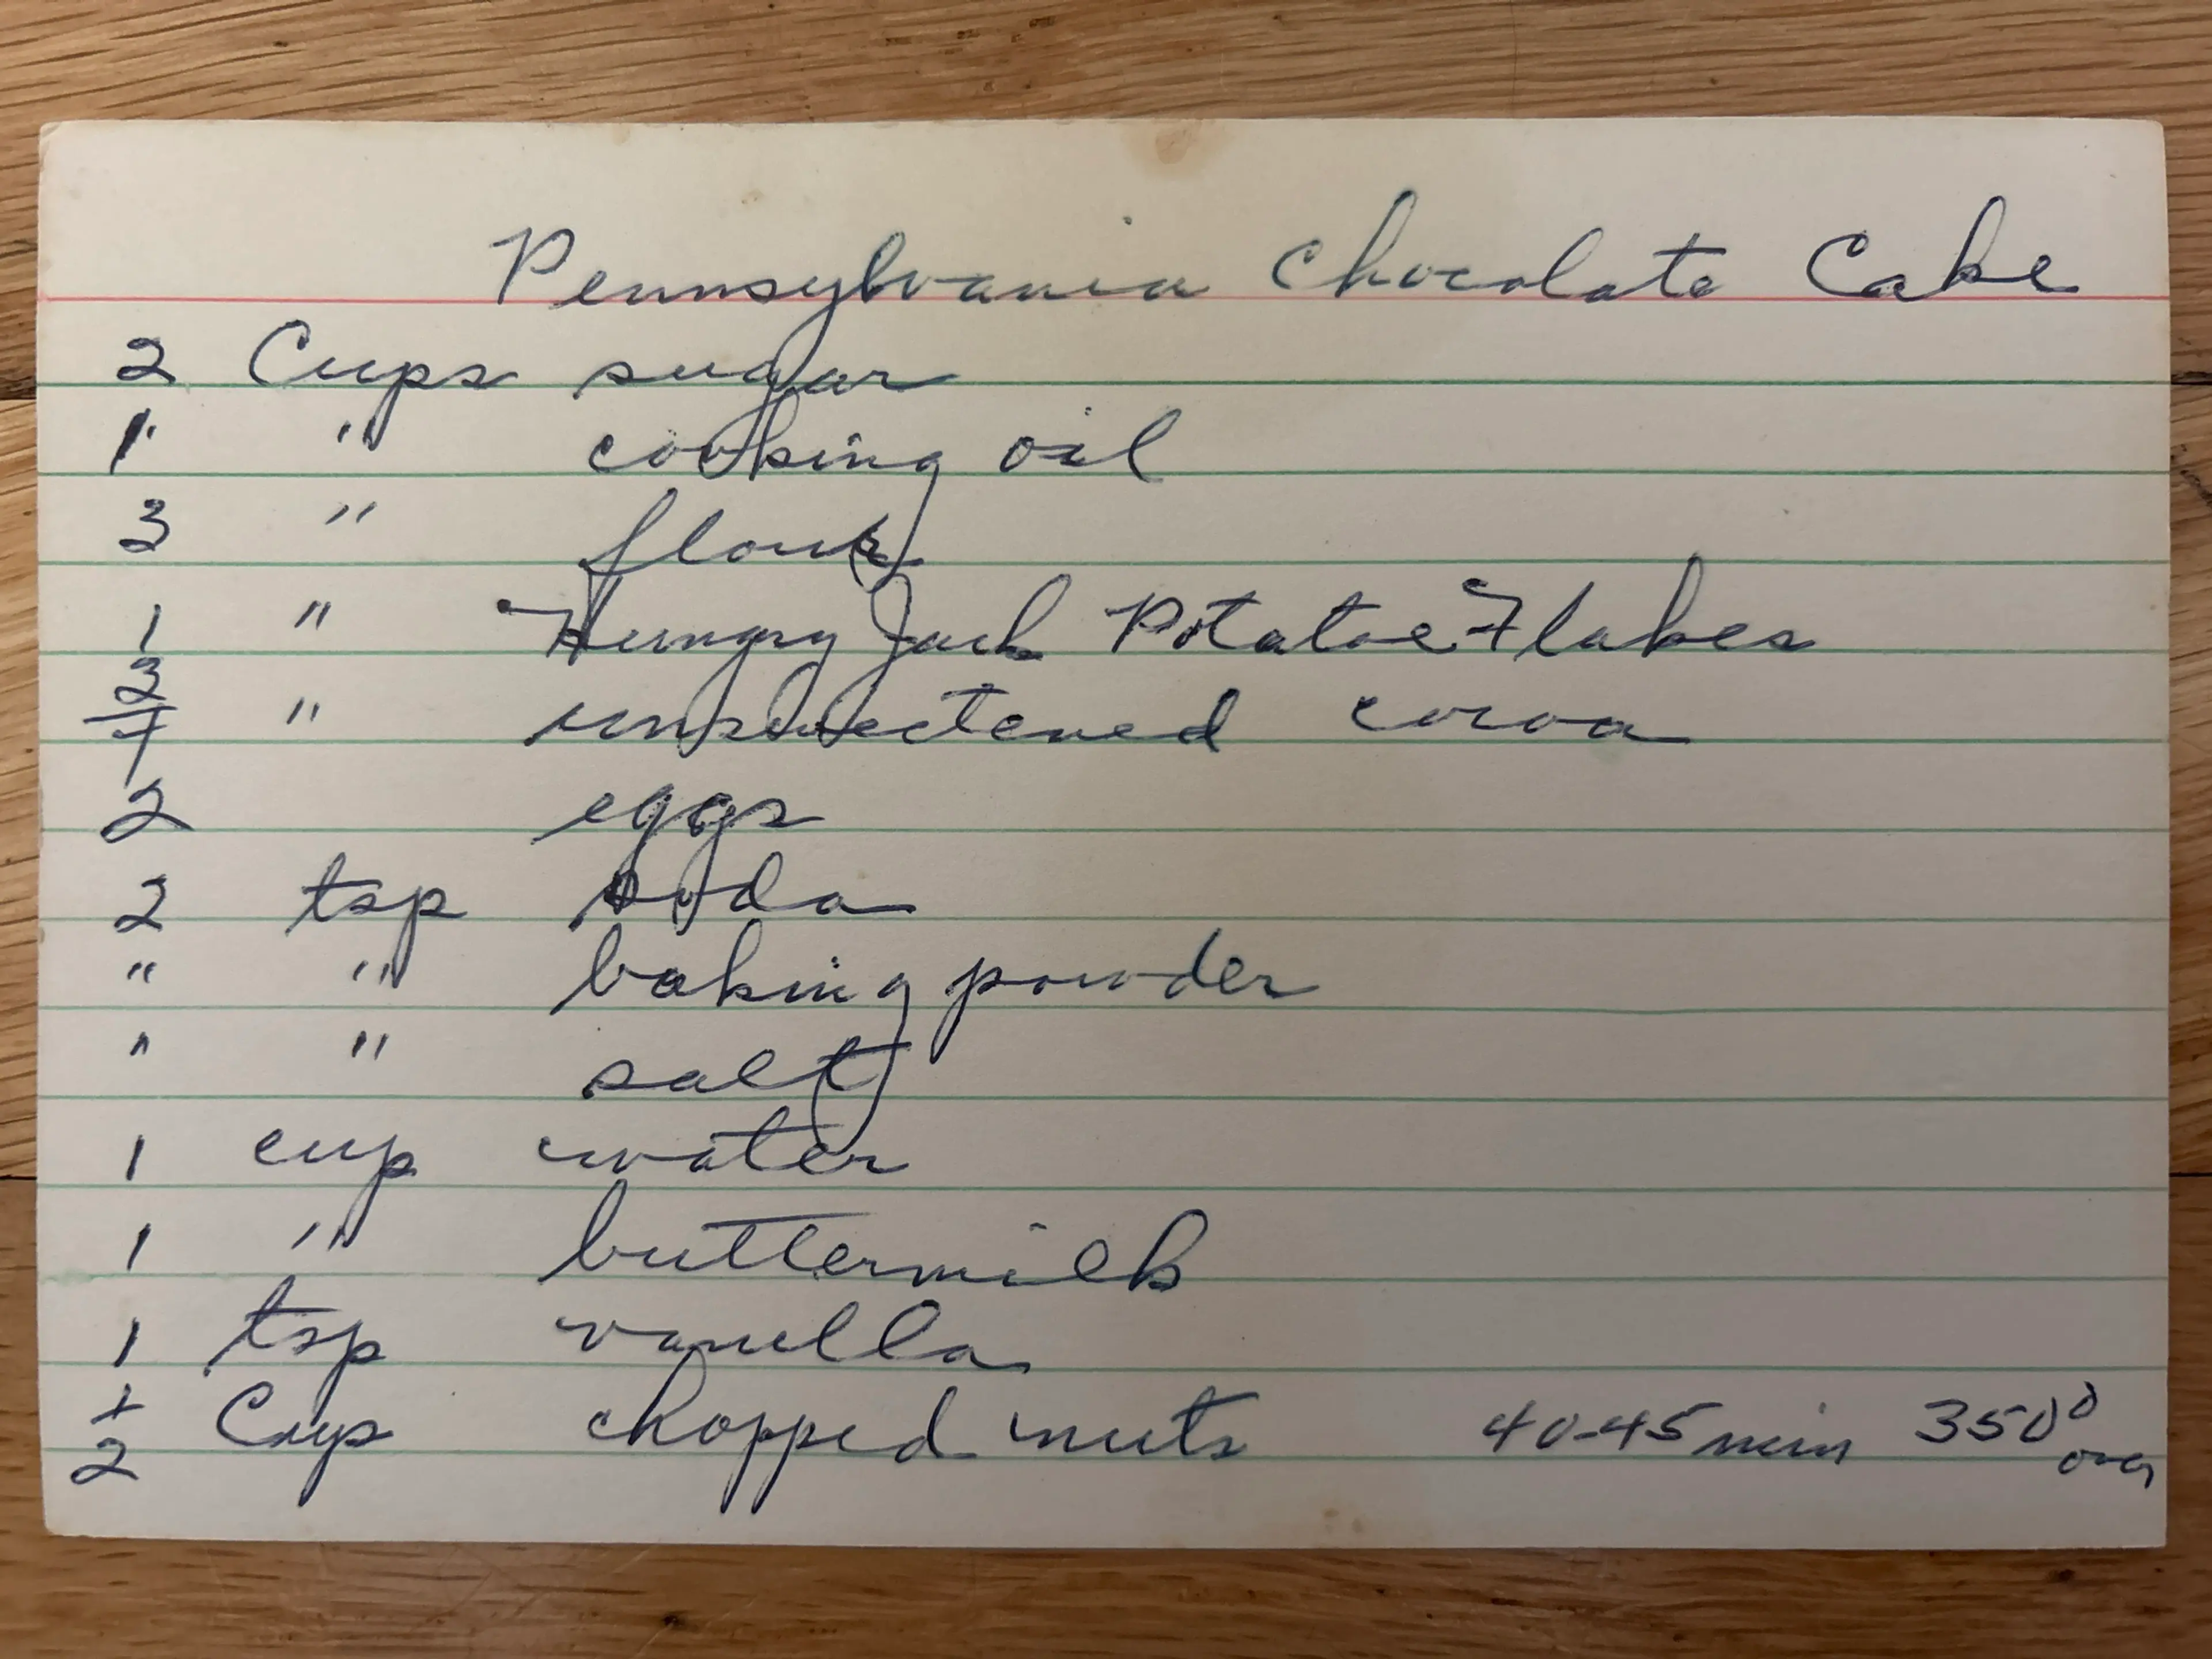 Pennsylvania Chocolate Cake
2 Cups sugar
1 " cooking oil
3 " flour
1 " Hungry Jack Potatoe Flakes
3/4 " unsweetened cocoa
2 eggs
2 tsp soda
" " baking powder
" " salt
1 cup water
1 " buttermilk
1 tsp vanilla
1/2 Cup chopped nuts 40-45 min 350°